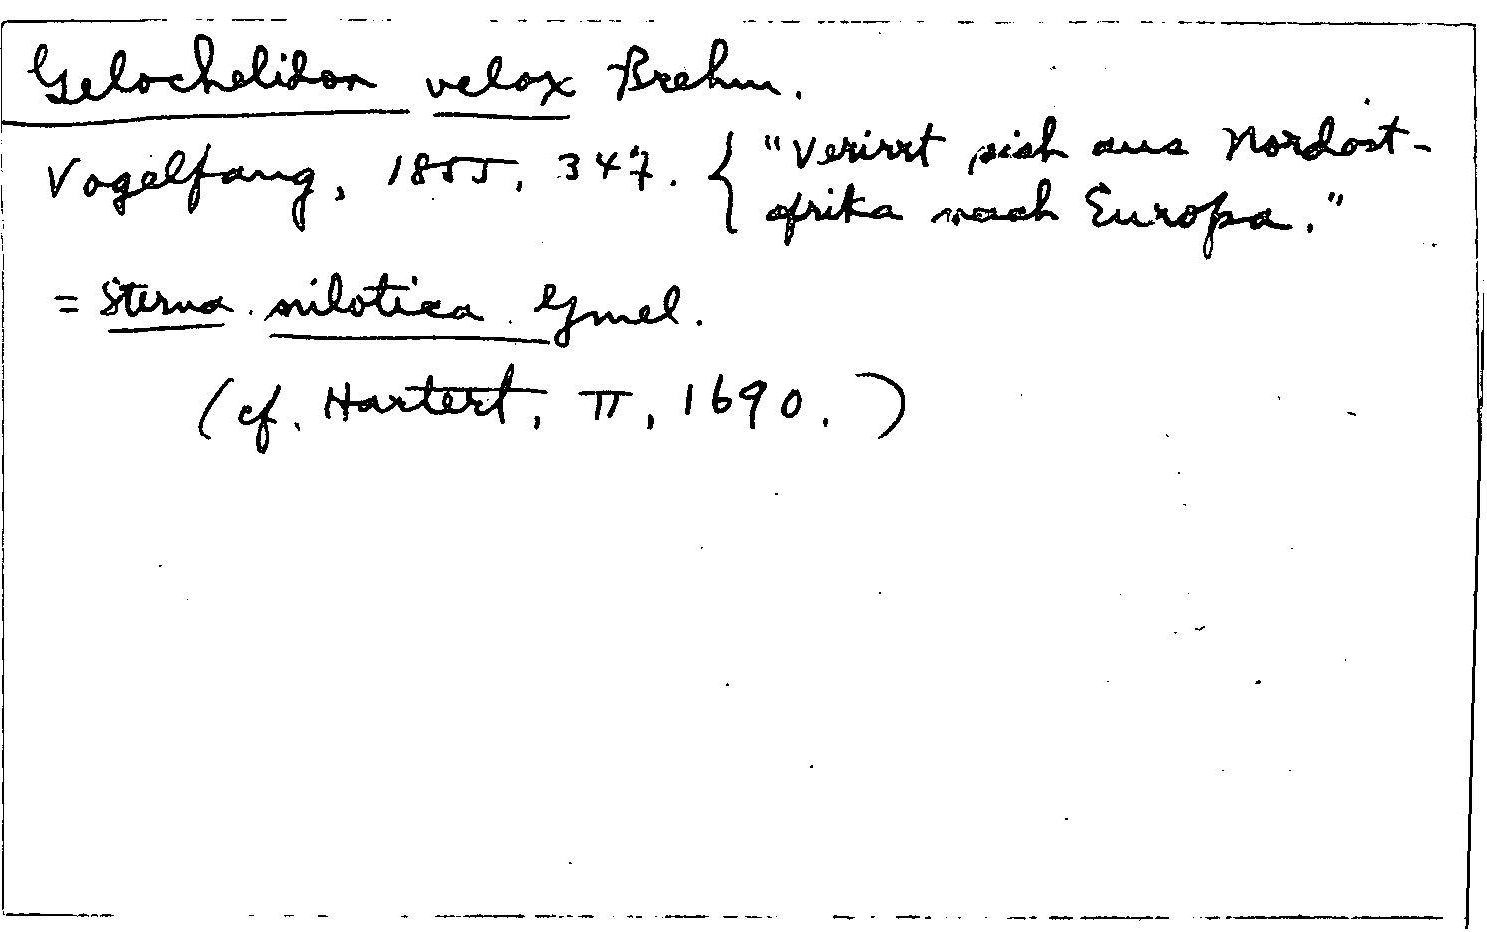 Gelochelidon velox Brehm.
Vogelfang, 1855, 347. { "Verirrt sich aus Nordost-
afrika nach Europa."
= Sterna nilotica Gmel.
(cf. Hartert, II, 1690.)